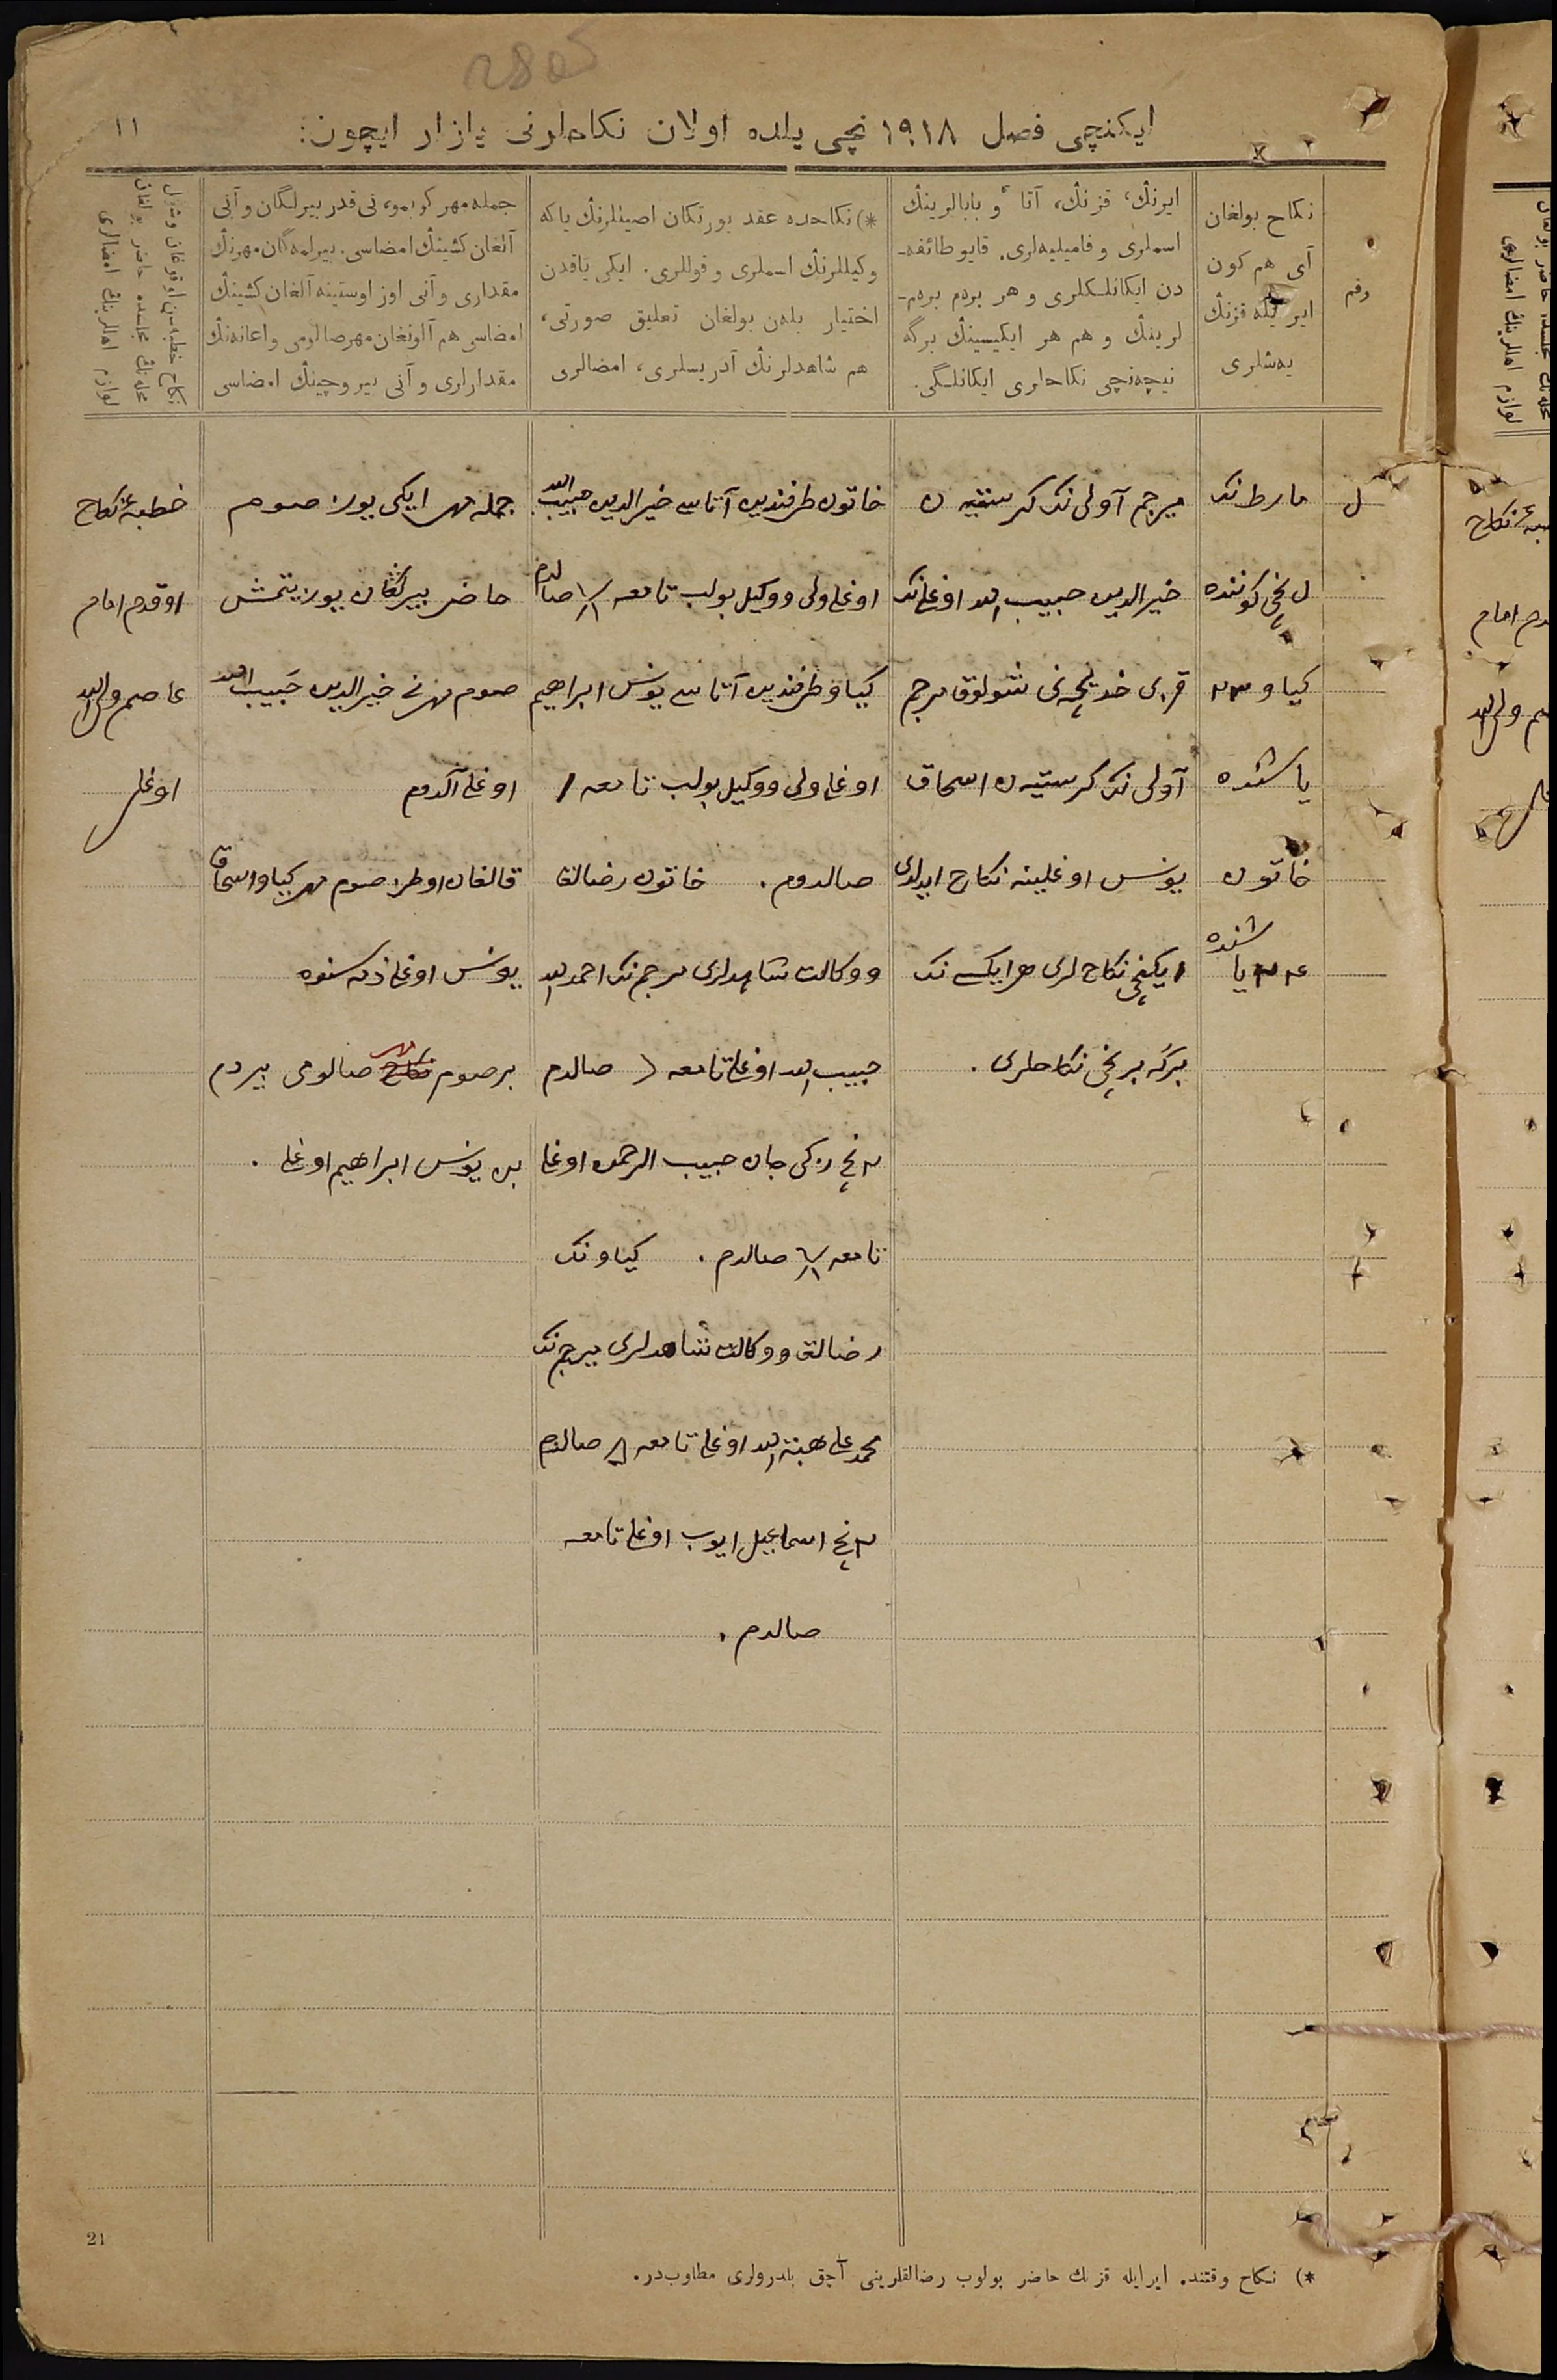 ایکنچی فصل ۱۹۱۸ نچی یلده اولان نکاحلرنی یازار ایچون:
۱۱
رقم
نکاح بولغان
آی هم کون
ایر یله قزنڭ
یەشلری
ایرنڭ، قزنڭ، آتا و بابالرینڭ
اسملری و فامیلیەلری. قایو طائفه‌
دن ایکانلکلری و هر برەم برەم
لرینڭ و هم هر ایکیسینڭ برگه
نیچەنچی نکاحلری ایکانلگی.
*) نکاحده عقد یورتکان اصیللرنڭ یاکه
وکیللرنڭ اسملری و قوللری. ایکی یاقدن
اختیار بلەن بولغان تعلیق صورتی،
هم شاهدلرنڭ آدریسلری، امضالری
جمله مهر کوبمو، نی قدر بیرلگان و آنی
آلغان کشینڭ امضاسی. بیرلمەگان مهرنڭ
مقداری و آنی اوز اوستینه آلغان کشینڭ
امضاسی هم آلونغان مهر صالومی و اعانەنڭ
مقدارلری و آنی بیروچینڭ امضاسی
نکاح خطبه‌سن اوقوغان و شول
محله‌نڭ مجلسده حاضر بولغان
لوازم اهللرینڭ امضالری
مارط نک
نچی کوننده
کیاو ۲۳
یاشنده
خاتون
۲۴ یاشنده
میرجم آولی نک کرستیه ن
خیرالدین حبیب الله اوغلی نک
قزی خدیجه نی شولوق مرجم
آولی نک کرستیه ن اسحاق
یونس اوغلینه نکاح ایدلدی
ایکنچی نکاح لری هر ایکسی نک
برگه برنچی نکاحلری.
خاتون طرفندین آتاسی خیرالدین حبیب الله
اوغلی ولی و وکیل بولب تامعه صالدم
کیاو طرفندین آتاسی یونس ابراهیم
اوغلی ولی و وکیل بولب تامعه
صالدوم. خاتون رضالق
و وکالت شاهدلری مرجم نک احمد الله
حبیب الله اوغلی تامعه صالدم
۲ نچی زکی جان حبیب الرحمن اوغلی
تامعه صالدم. کیاو نک
رضالق و وکالت شاهدلری میرجم نک
محمد علی هبة الله اوغلی تامعه صالدم
۲ نچی اسماعیل ایوب اوغلی تامعه
صالدم.
جمله مهر ایکی یوز صوم
حاضر بیرلگان یوز یتمش
صوم مهرنی خیرالدین حبیب الله
اوغلی آلدوم
قالغان اوطز صوم مهر کیاو اسحاق
یونس اوغلی ذمه سنده
بر صوم نکاح مهر صالومی بیردم
بن یونس ابراهیم اوغلی.
خطبهٔ نکاح
اوقدم امام
عاصم ولی الله
اوغلی
*) نکاح وقتنده ایر ایله قزنڭ حاضر بولوب رضالقلرینی آچق بلدرولری مطلوب‌در.
21